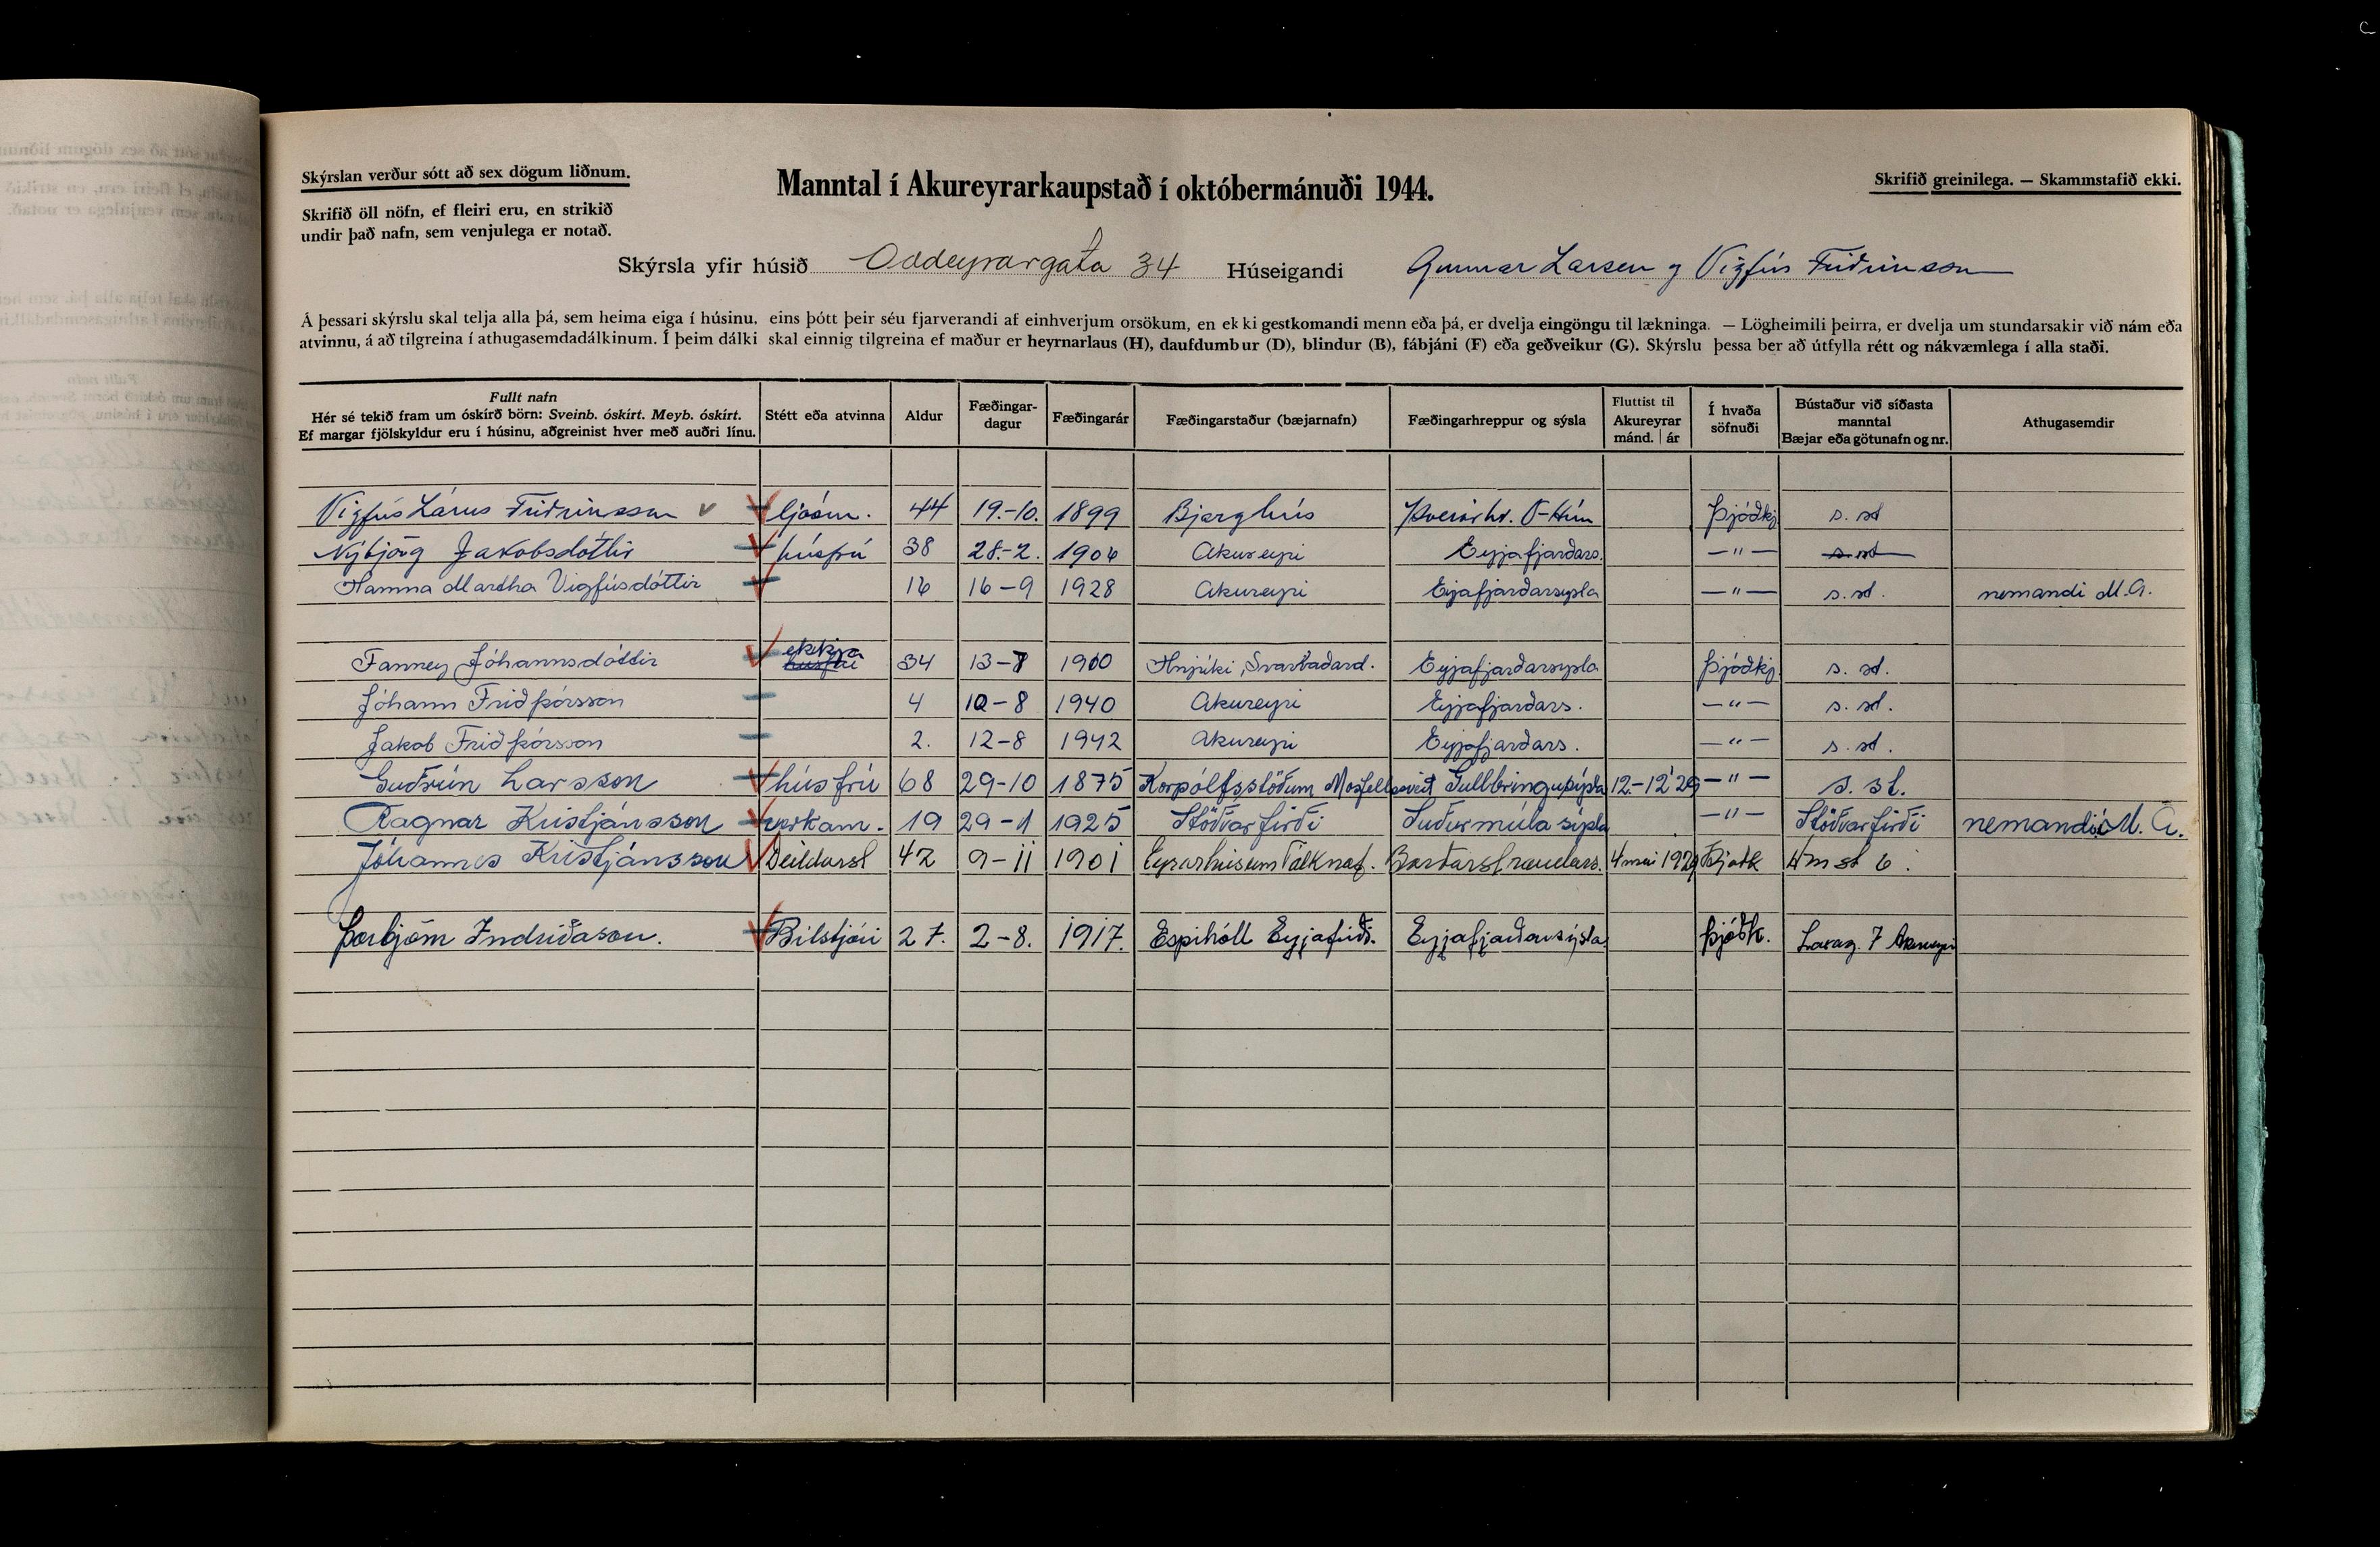 Skýrslan verður sótt að sex dögum liðnum.
Manntal í Akureyrarkaupstað í októbermánuði 1944.
Skrifið greinilega. — Skammstafið ekki.
Skrifið öll nöfn, ef fleiri eru, en strikið
undir það nafn, sem venjulega er notað.
Skýrsla yfir húsið Oddeyrargata 34 Húseigandi Gunnar Larsen og Vigfús Friðriksson
Á þessari skýrslu skal telja alla þá, sem heima eiga í húsinu, eins þótt þeir séu fjarverandi af einhverjum orsökum, en ekki gestkomandi menn eða þá, er dvelja eingöngu til lækninga. — Lögheimili þeirra, er dvelja um stundarsakir við nám eða
atvinnu, á að tilgreina í athugasemdadálkinum. Í þeim dálki skal einnig tilgreina ef maður er heyrnarlaus (H), daufdumbur (D), blindur (B), fábjáni (F) eða geðveikur (G). Skýrslu þessa ber að útfylla rétt og nákvæmlega í alla staði.
Fullt nafn
Hér sé tekið fram um óskírð börn: Sveinb. óskírt. Meyb. óskírt.
Ef margar fjölskyldur eru í húsinu, aðgreinist hver með auðri línu.
Stétt eða atvinna
Aldur
Fæðingar-
dagur
Fæðingarár
Fæðingarstaður (bæjarnafn)
Fæðingarhreppur og sýsla
Fluttist til
Akureyrar
mánd. | ár
Í hvaða
söfnuði
Bústaður við síðasta
manntal
Bæjar eða götunafn og nr.
Athugasemdir
Vigfús Lárus Friðriksson ljósm. 44 19.-10. 1899 Bjarghús Þverárhr. V-Hún Þjóðkj s. st
Nýbjörg Jakobsdóttir húsfrú 38 28.-2. 1906 Akureyri Eyjafjarðars. —"— s. st
Hanna Martha Vigfúsdóttir 16 16-9 1928 Akureyri Eyjafjarðarsysla —"— s. st. nemandi M.A.
Fanney Jóhannsdóttir ekkja húsfrú 34 13-7 1910 Hnjúki, Svarfaðard. Eyjafjarðarsysla Þjóðkj. s. st.
Jóhann Friðþórsson 4 10-8 1940 Akureyri Eyjafjarðars. —"— s. st.
Jakob Friðþórsson 2. 12-8 1942 Akureyri Eyjafjarðars. —"— s. st.
Guðrún Larsson húsfrú 68 29-10 1875 Korpólfsstöðum Mosfellssveit Gullbringusýsla 12.-12 '29 —"— s. st.
Ragnar Kristjánsson verkam. 19 29-1 1925 Stöðvarfirði Suðurmúlasýsla —"— Stöðvarfirði nemandi M. A.
Jóhannes Kristjánsson Deildarst 42 9-11 1901 Eyrarhúsum Tálknaf. Barðarstrandars. 4 maí 1929 Þjóðk
Þorbjörn Indriðason. Bílstjóri 27. 2-8. 1917. Espihóll Eyjafirði. Eyjafjarðarsýsla. Þjóðk. 7 Akureyri